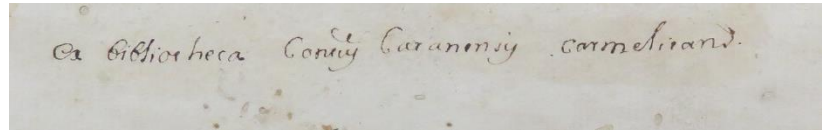 Ex bibliotheca Convūs Caranensis Carmelitanō.